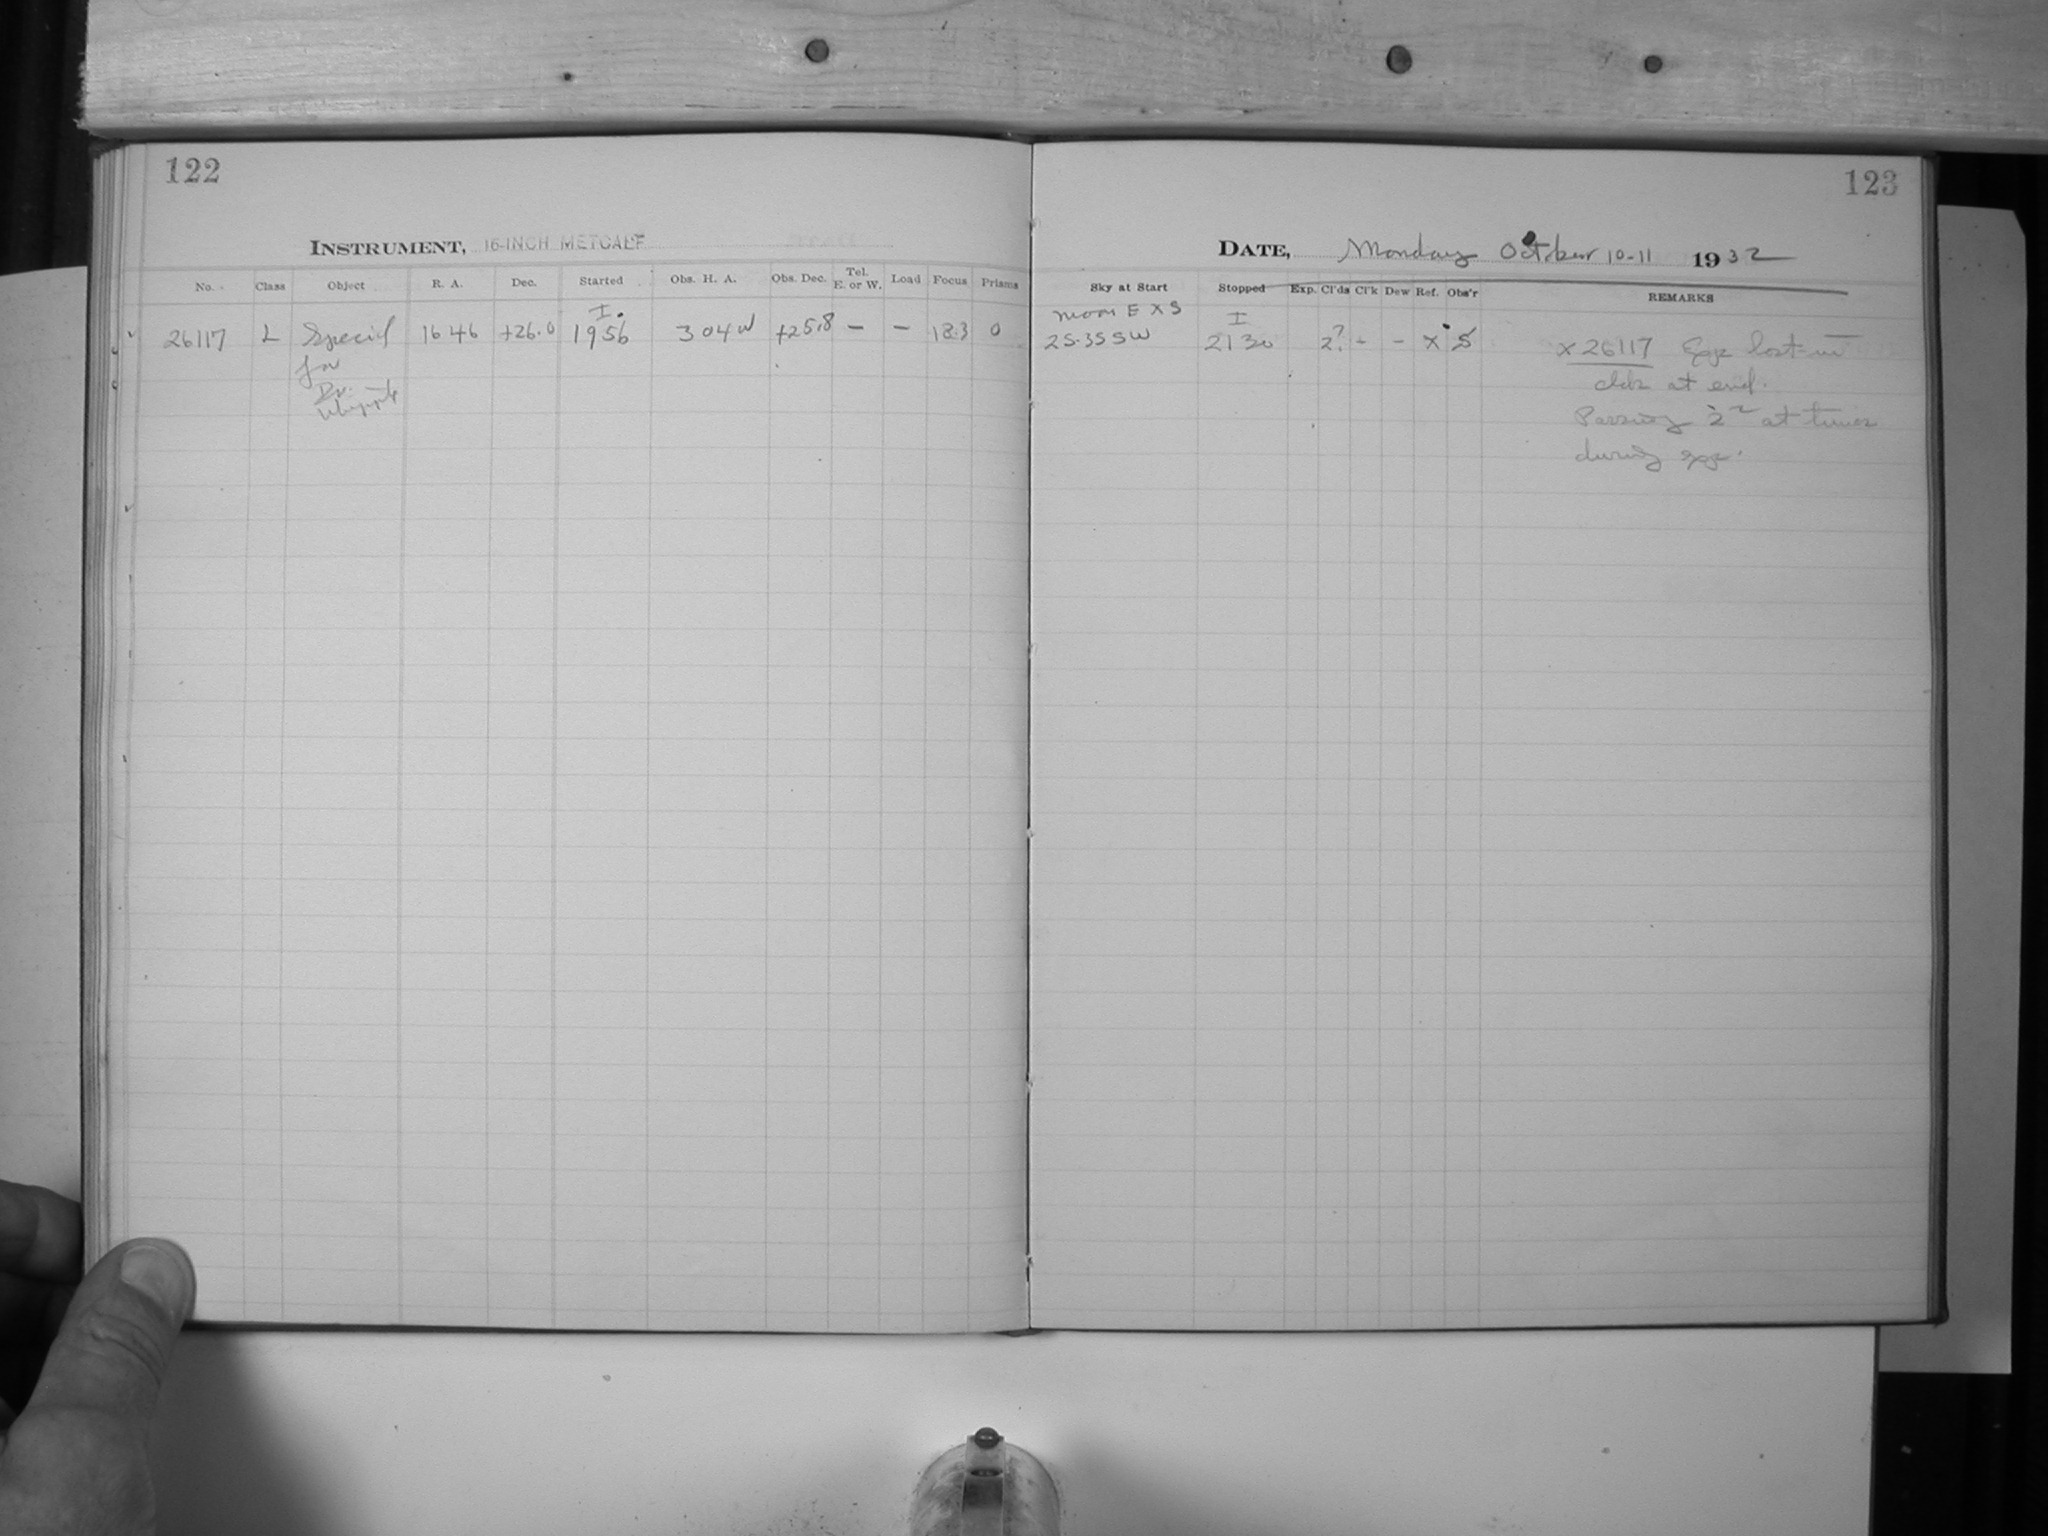 122
INSTRUMENT, 16-INCH METCALF
No. Class Object R. A. Dec. Started Obs. H. A. Obs. Dec. Tel. E. or W. Load Focus Prisms
I.
26117 L Special 16 46 +26.0 1956 3 04 W +25.8 — — 18.3 0
for
Dr.
Whipple
123
DATE, Monday October 10-11 1932
Sky at Start Stopped Exp. Cl'ds Cl'k Dew Ref. Obs'r REMARKS
moon E X S I
25.35 SW 2130 2? - - X S X 26117 Exp lost in
clds at end.
Passing 2 at times
during exp.